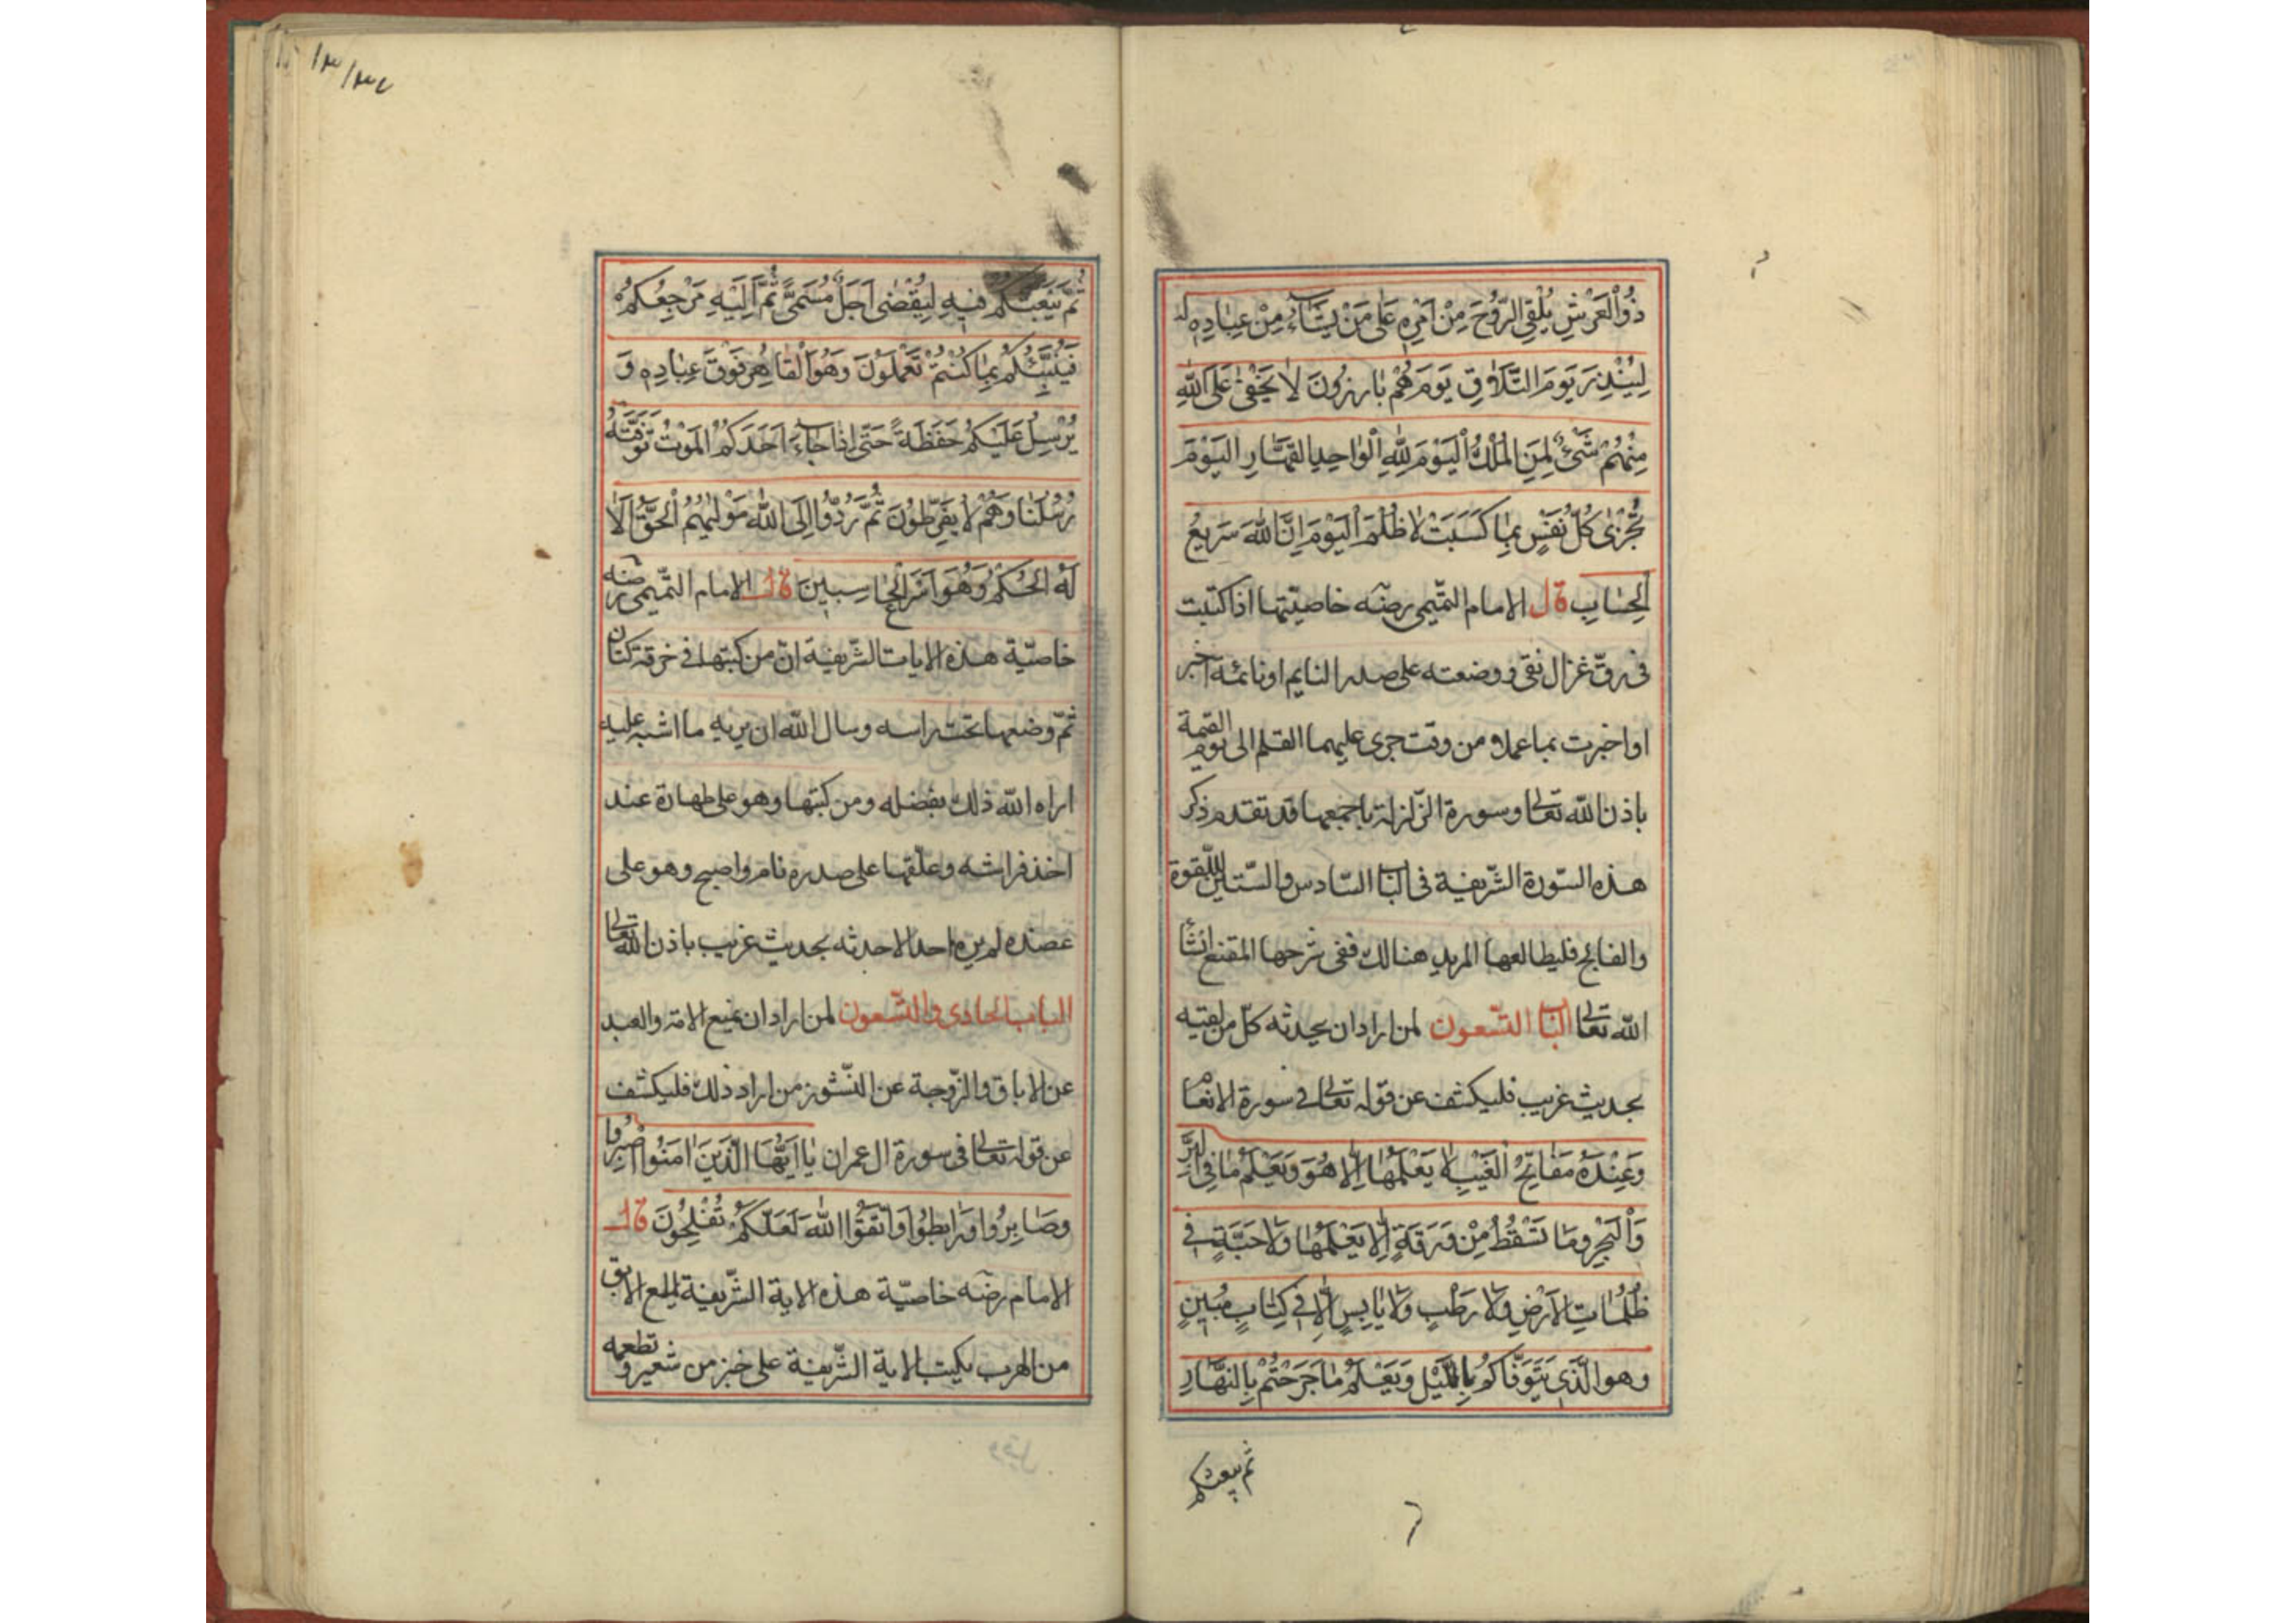 ذُو الْعَرْشِ يُلْقِي الرُّوحَ مِنْ اَمْرِهِ عَلٰى مَنْ يَشَاءُ مِنْ عِبَادِهِ
لِيُنْذِرَ يَوْمَ التَّلَاقِ يَوْمَ هُمْ بَارِزُونَ لَا يَخْفٰى عَلَى اللّٰهِ
مِنْهُمْ شَيْءٌ لِمَنِ الْمُلْكُ الْيَوْمَ لِلّٰهِ الْوَاحِدِ الْقَهَّارِ الْيَوْمَ
تُجْزٰى كُلُّ نَفْسٍ بِمَا كَسَبَتْ لَا ظُلْمَ الْيَوْمَ اِنَّ اللّٰهَ سَرِيعُ
الْحِسَابِ قال الامام التميمى رضه خاصيتها اذا كتبت
فى رق غزال نقى ووضعته على صدر النايم او نائمة اخبر
او اخبرت بما عملا من وقت جرى عليهما القلم الى يوم القيمة
باذن الله تعالى وسورة الزلزلة باجمعها قد تقدم ذكر
هذه السّورة الشّريفة فى الباب السّادس والسّتين للّقوة
والفالج فليطالعها المريد هنالك ففى شرحها المقنع انشا
الله تعالى الباب التّسعون لمن اراد ان يحدثه كلّ من لقيه
بحديث غريب فليكشف عن قوله تعالى فى سورة الانعام
وَعِنْدَهُ مَفَاتِحُ الْغَيْبِ لَا يَعْلَمُهَا اِلَّا هُوَ وَيَعْلَمُ مَا فِي الْبَرِّ
وَالْبَحْرِ وَمَا تَسْقُطُ مِنْ وَرَقَةٍ اِلَّا يَعْلَمُهَا وَلَا حَبَّةٍ فِي
ظُلُمَاتِ الْاَرْضِ وَلَا رَطْبٍ وَلَا يَابِسٍ اِلَّا فِي كِتَابٍ مُبِينٍ
وهو الَّذِي يَتَوَفَّاكُمْ بِاللَّيْلِ وَيَعْلَمُ مَا جَرَحْتُمْ بِالنَّهَارِ
ثم يبعثكم
ثُمَّ يَبْعَثُكُمْ فِيهِ لِيُقْضٰى اَجَلٌ مُسَمًّى ثُمَّ اِلَيْهِ مَرْجِعُكُمْ
فَيُنَبِّئُكُمْ بِمَا كُنْتُمْ تَعْمَلُونَ وَهُوَ الْقَاهِرُ فَوْقَ عِبَادِهِ وَ
يُرْسِلُ عَلَيْكُمْ حَفَظَةً حَتّٰى اِذَا جَاءَ اَحَدَكُمُ الْمَوْتُ تَوَفَّتْهُ
رُسُلُنَا وَهُمْ لَا يُفَرِّطُونَ ثُمَّ رُدُّوا اِلَى اللّٰهِ مَوْلٰيهُمُ الْحَقُّ اَلَا
لَهُ الْحُكْمُ وَهُوَ اَسْرَعُ الْحَاسِبِينَ قال الامام التّميمى رضه
خاصيّة هذه الايات الشّريفة انّ من كتبها فى خرقة كتان
ثمّ وضعها تحت راسه وسال الله ان يريه ما اشبه عليه
اراه الله ذلك بفضله ومن كتبها وهو على طهارة عند
اخذ فراشه وعلّقها على صدره نام واصبح وهو على
عضده لم يره احد الا حدثه بحديث غريب باذن الله تعالى
الباب الحادى والتّسعون لمن اراد ان يمنع الامة والعبد
عن الاباق والزّوجة عن النّشوز من اراد ذلك فليكشف
عن قوله تعالى فى سورة ال عمران يَا اَيُّهَا الَّذِينَ اٰمَنُوا اصْبِرُوا
وصَابِرُوا وَرَابِطُوا وَاتَّقُوا اللّٰهَ لَعَلَّكُمْ تُفْلِحُونَ قال
الامام رضه خاصيّة هذه الاية الشّريفة لمنع الابق
من الهرب يكتب الاية الشّريفة على خبز من شعير وتطعمه